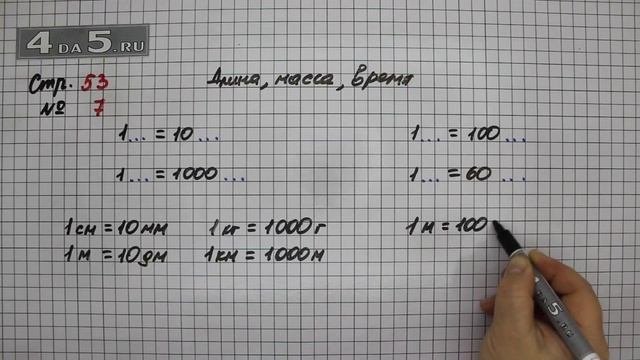 4 DA 5.RU
Стр. 53
№ 7
Длина, масса, время
1 ... = 10 ...
1 ... = 100 ...
1 ... = 1000 ...
1 ... = 60 ...
1 см = 10 мм
1 кг = 1000 г
1 м = 100
1 м = 10 дм
1 км = 1000 м
4 DA 5.RU